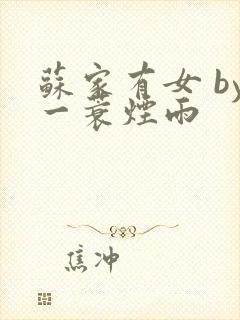 蘇家有女 by
一蓑煙雨
焦冲